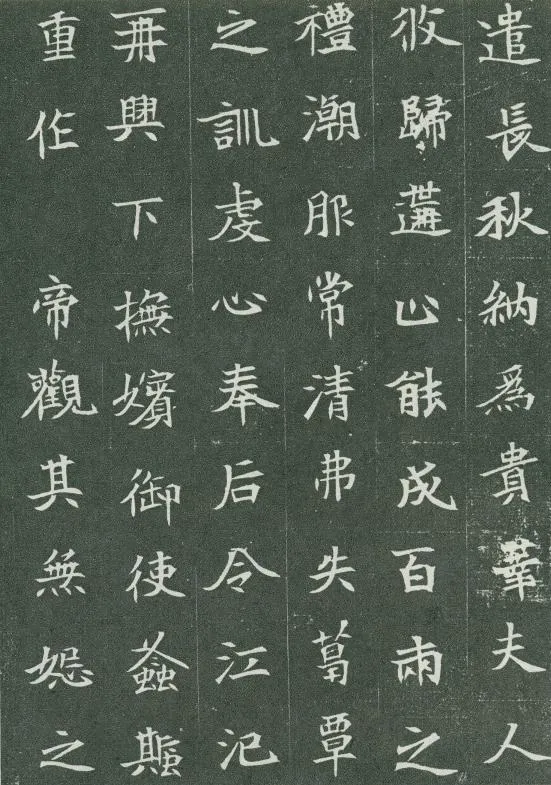 遣長秋納爲貴華夫人
攸歸遘止能成百兩之
禮潮服常清弗失葛覃
之訓虔心奉后令江汜
再興下撫嬪御使螽蟴
重作　帝觀其無怨之